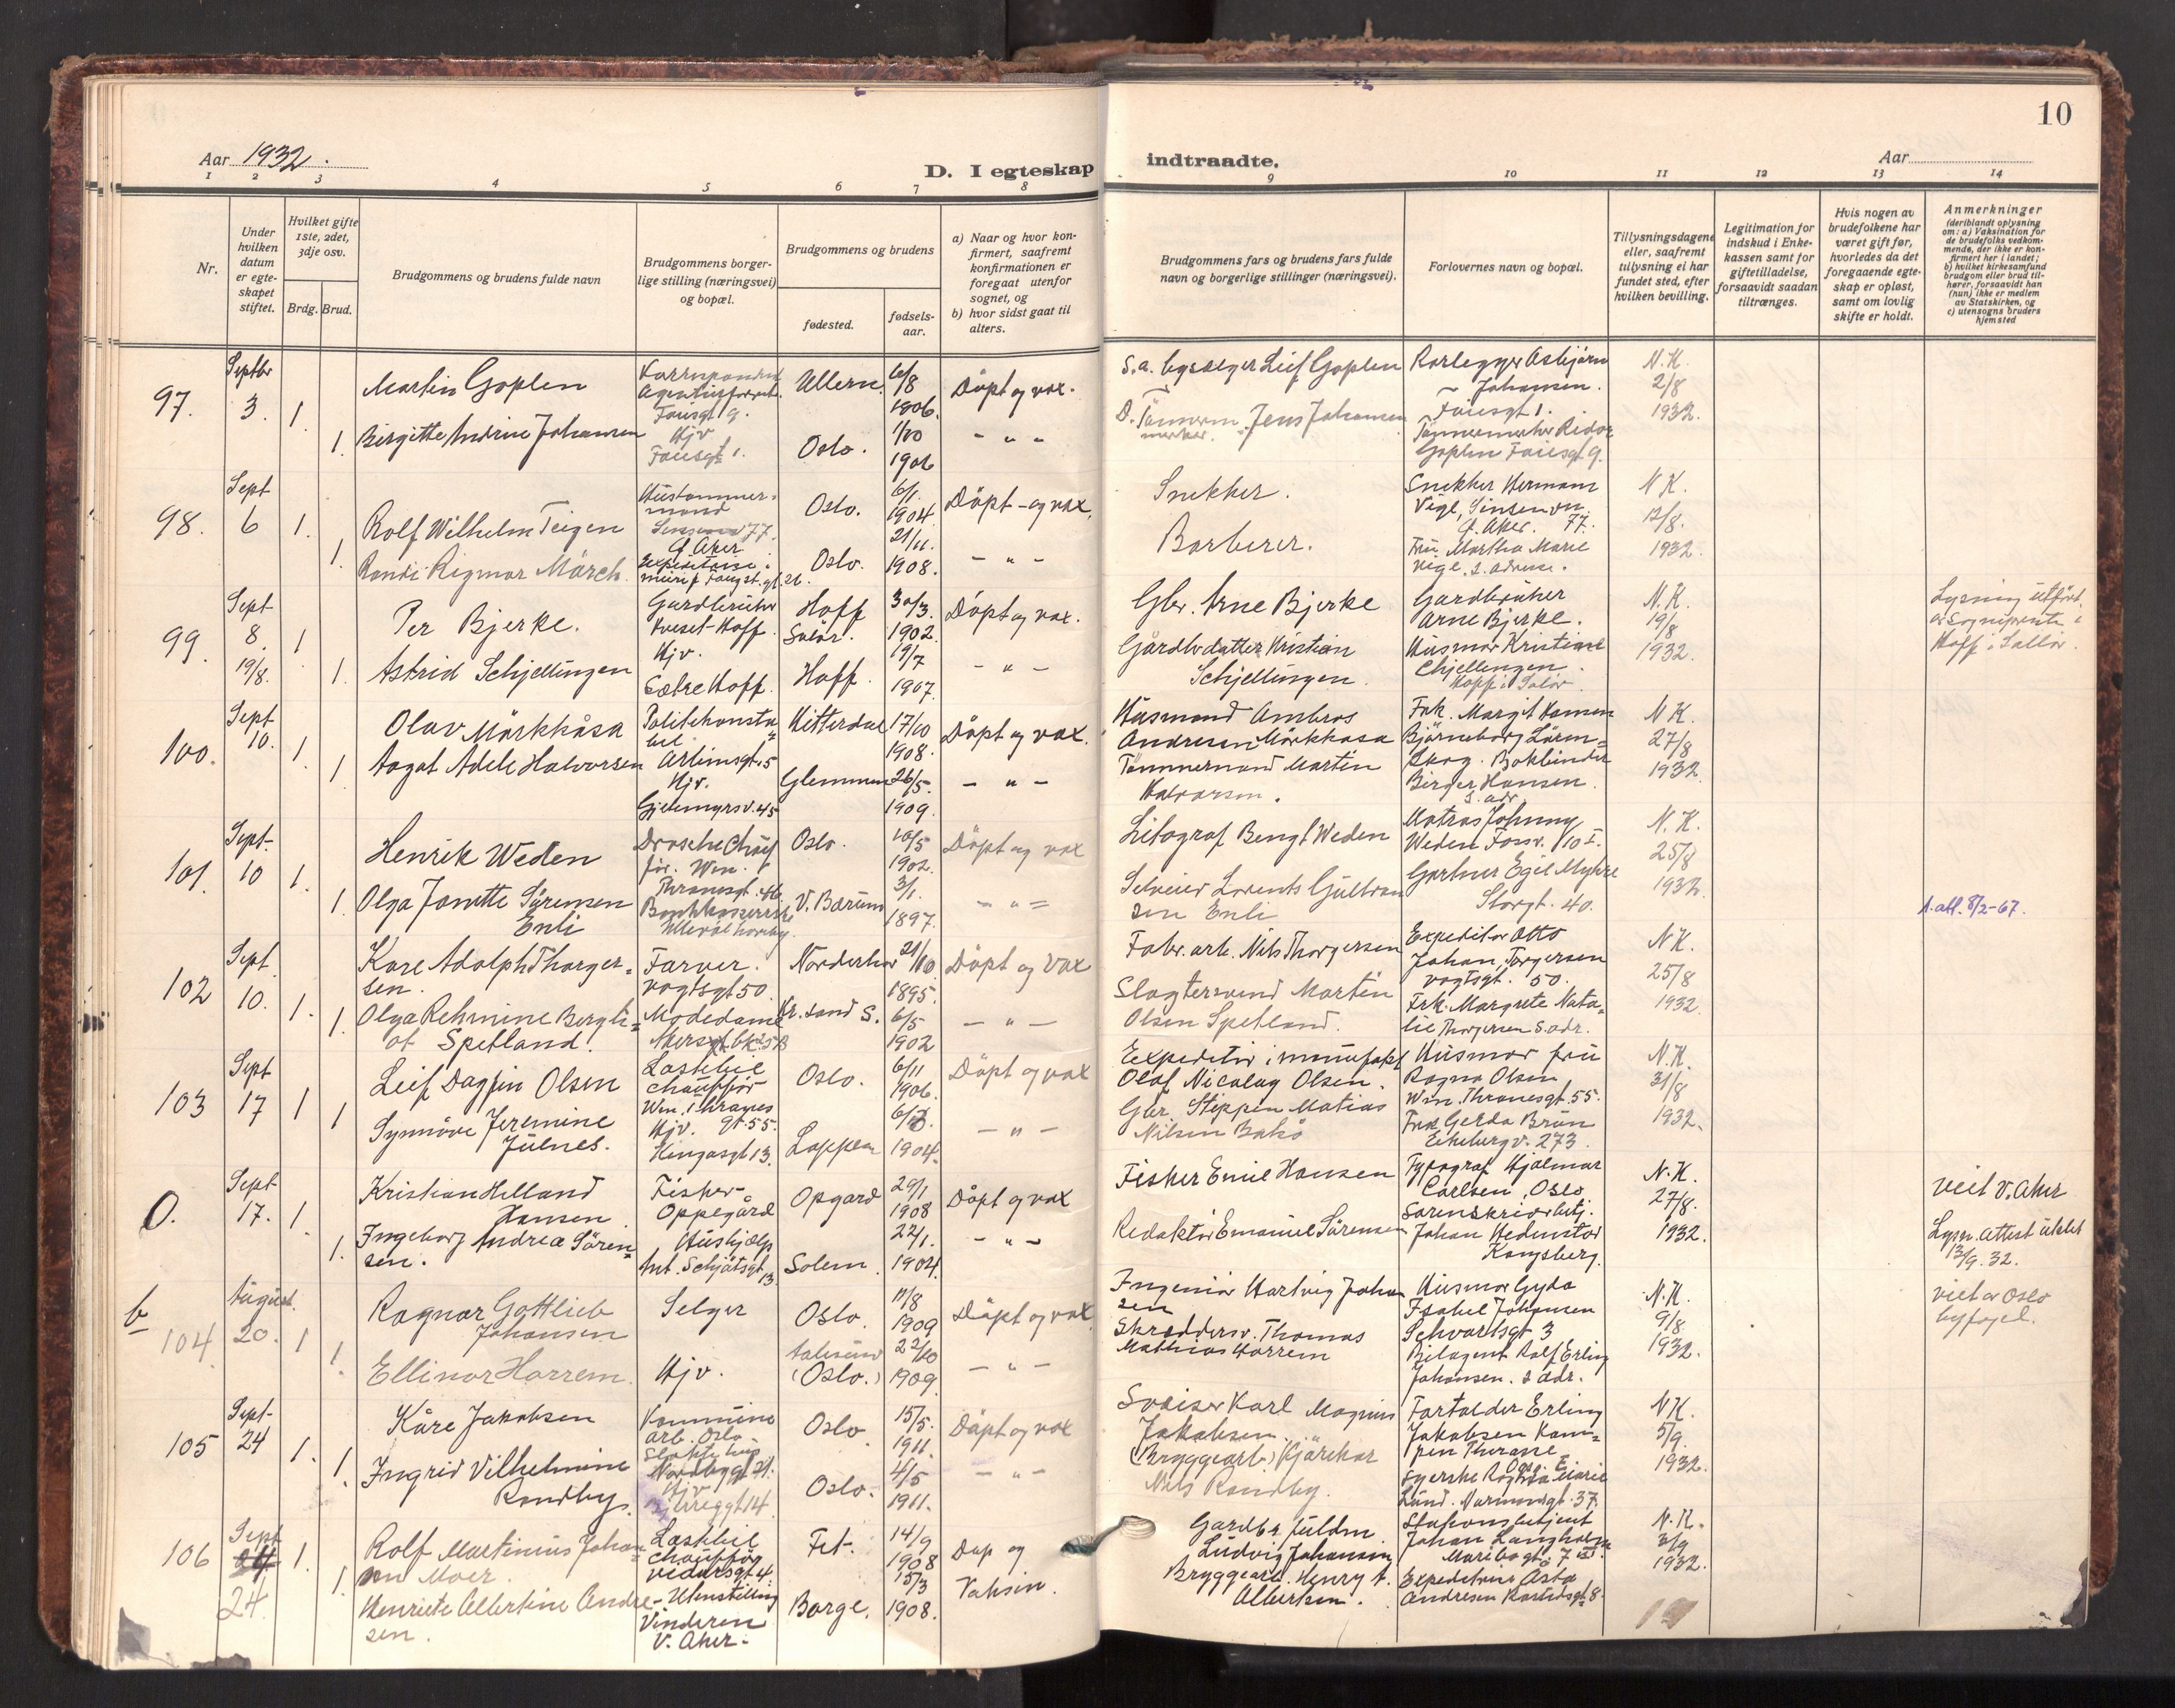 10
Aar 1932.
D. I egteskap indtraadte.
Aar
1 2 3 4 5 6 7 8 9 10 11 12 13 14
Nr.
Under hvilken datum er egteskapet stiftet.
Hvilket gifte 1ste, 2det, 3dje osv.
Brdg. Brud.
Brudgommens og brudens fulde navn
Brudgommens borgerlige stilling (næringsvei) og bopæl.
Brudgommens og brudens
fødested.
fødselsaar.
a) Naar og hvor konfirmert, saafremt konfirmationen er foregaat utenfor sognet, og
b) hvor sidst gaat til alters.
Brudgommens fars og brudens fars fulde navn og borgerlige stillinger (næringsvei).
Forlovernes navn og bopæl.
Tillysningsdagene eller, saafremt tillysning ei har fundet sted, efter hvilken bevilling.
Legitimation for indskud i Enkekassen samt for giftetilladelse, forsaavidt saadan tiltrænges.
Hvis nogen av brudefolkene har været gift før, hvorledes da det foregaaende egteskap er opløst, samt om lovlig skifte er holdt.
Anmerkninger
(deriblandt oplysning om: a) Vaksination for de brudefolks vedkommende, der ikke er konfirmert her i landet;
b) hvilket kirkesamfund brudgom eller brud tilhører, forsaavidt han (hun) ikke er medlem av Statskirken, og
c) utensogns bruders hjemsted
97. Septbr 3. 1. 1.
Martin Goplen
Faiisgt 9.
Ullern 6/8 1906.
Döpt og vax.
Birgitte Andrine Johansen
Hjv
Faiisgt 1.
Oslo. 1/10 1906
- " -
S.a. bysælger Leif Goplen
D. Jens Johansen
Rørlegger Asbjørn Johansen.
Faiisgt 1.
Tømmermester Reidar
Goplen Faiisgt 9.
N.K. 2/8 1932.
98. Sept 6 1. 1.
Rolf Wilhelm Teigen
77. Ø. Aker
Oslo. 6/1. 1904.
Döpt og vax.
Randi Rigmor Mürch.
Oslo. 21/11. 1908.
- " -
Snekker.
Barberer.
Snekker Hermann
Vigl, Sinsenvn.
Ø. Aker. 77.
Fru Martha Marie
Vigl. s. adresse.
N.K. 12/8. 1932.
99. Sept 8. 19/8. 1 1.
Per Bjerke.
Gardbruker
Hoff Solör. 30/3. 1902.
Döpt og vax.
Astrid Schjellingen
Hjv.
Sætre Hoff.
Hoff. 19/7 1907.
- " -
Gbr. Arne Bjerke
Kristian
Schjellingen.
Gardbruker
Arne Bjerke.
Husmor Kristiane
Hoff i Solör.
N.K. 19/8 1932.
Lysning utført
av sognepresten i
Hoff i Solør.
100. Sept 10. 1. 1
Olav Mörkkåsa
Politikonstabel
Hitterdal 17/10 1908.
Döpt og vax.
Aagot Adele Halvorsen
Hjv.
Gjetemyrsv. 45
Glemmen 26/5. 1909.
- " -
Husmand Ambros
Andresen Mörkkasa
Tømmermand Martin
Halvorsen.
Frk. Margit Hansen
Bjørneborg Lören=
skog. Bokbinder
Birger Hansen.
s. adr.
N.K. 27/8 1932.
101. Sept. 10 1. 1.
Henrik Weden
Drosche Chauf
för. Wm.
Thranesgt. 46
Oslo. 10/5 1902.
Döpt og vax
Olga Janette Sörensen
Enli
V. Bærum 3/1. 1897.
- " =
Litograf Bengt Weden
Selveier Lorents Gulbran
sen Enli
Matros Johnny
Weden Fossv. 10 I.
Gartner Egil Myhre
Storgt. 40.
N.K. 25/8 1932.
A. att. 8/2-67.
102 Sept 10. 1. 1.
Kåre Adolph Thorger=
sen.
Farver.
Vogtsgt 50.
Norderhov 21/10 1895.
Döpt og Vax
Olga Rehmine Bergli=
ot Spetland.
Modedame
Kr. sand S. 6/5 1902
- " -
Fabr. arb. Nils Thorgersen
Slagtersvend Martin
Olsen Spetland.
Expeditør Otto
Johan Torgersen
Vogtsgt. 50.
Frk. Margrete Nata=
lie Thorgersen s. adr.
N.K. 25/8 1932
103 Sept 17 1 1
Leif Dagfin Olsen
Lastebil
chauffør
Wm. Thranes
gt. 55.
Oslo. 6/11 1906.
Döpt og vax
Synnöve Jeremine
Julnes.
Hjv.
Kingosgt 13.
1904.
- " -
Expeditör i
Olaf Nicolay Olsen.
Gbr. Steffen Matias
Nilsen
Husmor fru
Ragna Olsen
Wm. Thranesgt. 55.
Frk Gerda Brun
Ekebergv. 273.
N.K. 31/8 1932.
0. Sept 17. 1. 1.
Kristian Helland
Hansen
Fisker
Oppegård
Opgard 29/1 1908
Döpt og vax
Ingeborg Andrea Sören=
sen.
Hushjælp
Ant. Schjötsgt. 13
Solem. 22/1. 1904.
- " -
Fisker Emil Hansen
Redaktör Emanuel Sörensen
Typograf Hjalmar
Carlsen, Oslo
Sorenskriverbetj.
Johan Hedenstad
Kongsberg.
N.K. 27/8. 1932.
viet V. Aker
Lysn. attest utstet
13/9. 32.
b 104 August. 20. 1 1.
Ragnar Gottlieb
Johansen
Selger
Oslo. 11/8 1909
Döpt og vax
Ellinor Harrem.
Hjv.
(Oslo.) 22/10 1909.
- " -
Ingeniör Hartvig Johan
sen
Skreddersv. Thomas
Mathias Harrem
Husmor Gyda
Isabel Johansen
Schvartsgt 3
Bilagent Rolf Erling
Johansen. s. adr.
N.K. 9/8 1932.
viet av Oslo
byfoged.
105 Sept. 24 1. 1.
Kåre Jakobsen
Kommune
arb. Oslo
Oslo 15/5. 1911.
Döpt og vax
Ingrid Vilhelmine
Randby.
Hjv
Oslo. 4/5 1911.
- " -
Sveiser Karl Magnus
Jakobsen.
(Bryggearb.) Kjørekar
Nils Randby.
Fortolder Erling
Jakobsen Kam=
pen Therasse
Oslo. E.
Syerske Marie
Lund. 37.
N.K. 5/9. 1932.
106 Sept 24 1 1.
24.
Rolf Martinius Johan
sen Moer.
Lastebil
chauffør
Fet. 14/9 1908
Døp og
Vaksin.
Henriete Albertine Andre-
sen.
Vinderen
V. Aker.
Borge. 15/3 1908.
Gardbr.
Ludvig Johansen
Bryggearb. Henry
Albertsen.
Stasjonsbetjent
Johan Langholm
Maribogt. 7
Expeditrise Asta
Andresen
N.K. 3/9 1932.